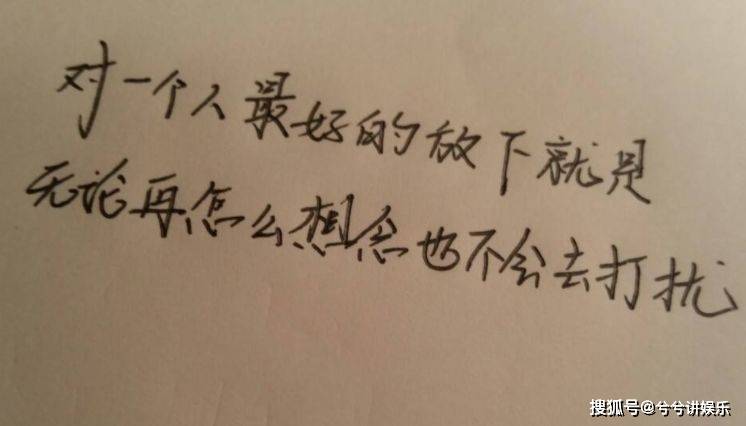 对一个人最好的放下就是
无论再怎么想念也不会去打扰
搜狐号@兮兮讲娱乐